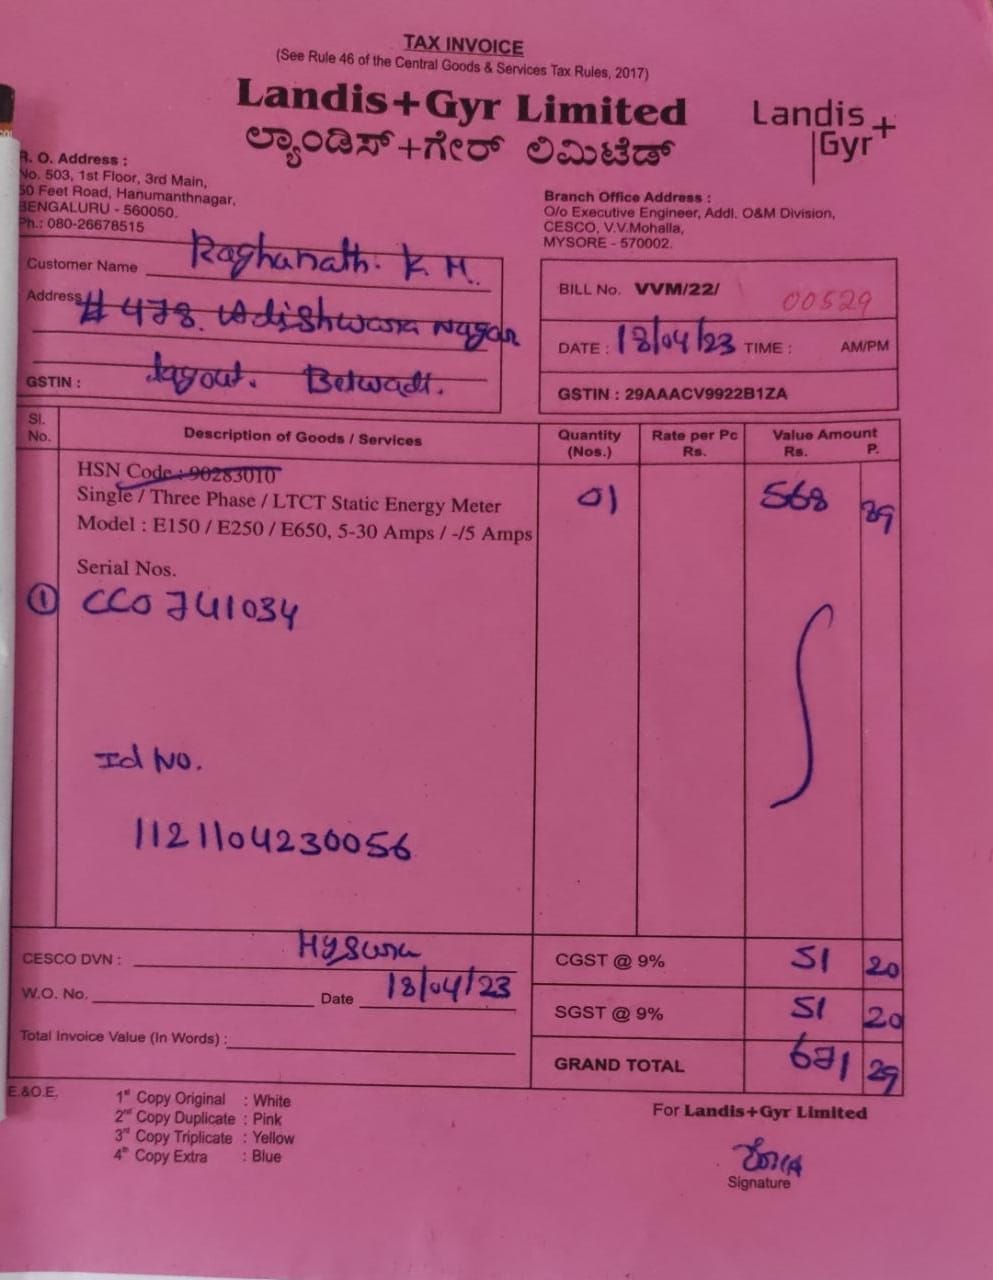 TAX INVOICE
(See Rule 46 of the Central Goods & Services Tax Rules, 2017)
Landis+Gyr Limited
ಲ್ಯಾಂಡಿಸ್+ಗೇರ್ ಲಿಮಿಟೆಡ್
Landis
Gyr+
R. O. Address :
No. 503, 1st Floor, 3rd Main,
50 Feet Road, Hanumanthnagar,
BENGALURU - 560050.
Ph.: 080-26678515
Branch Office Address :
O/o Executive Engineer, Addl. O&M Division,
CESCO, V.V.Mohalla,
MYSORE - 570002.
Customer Name Raghunath. K. M.
Address # 478. Adishwara Nagar
Layout. Belwadi.
GSTIN :
BILL No. VVM/22/ 00529
DATE : 18/04/23 TIME : AM/PM
GSTIN : 29AAACV9922B1ZA
Sl. No. Description of Goods / Services Quantity (Nos.) Rate per Pc Rs. Value Amount Rs. P.
HSN Code : 90283010
Single / Three Phase / LTCT Static Energy Meter 01 568 89
Model : E150 / E250 / E650, 5-30 Amps / -/5 Amps
Serial Nos.
① CCO741034
Id No.
1121104230056
CESCO DVN : Mysuru
W.O. No. Date 18/04/23
Total Invoice Value (In Words) :
CGST @ 9% 51 20
SGST @ 9% 51 20
GRAND TOTAL 671 29
E.&O.E.
1st Copy Original : White
2nd Copy Duplicate : Pink
3rd Copy Triplicate : Yellow
4th Copy Extra : Blue
For Landis+Gyr Limited
Signature